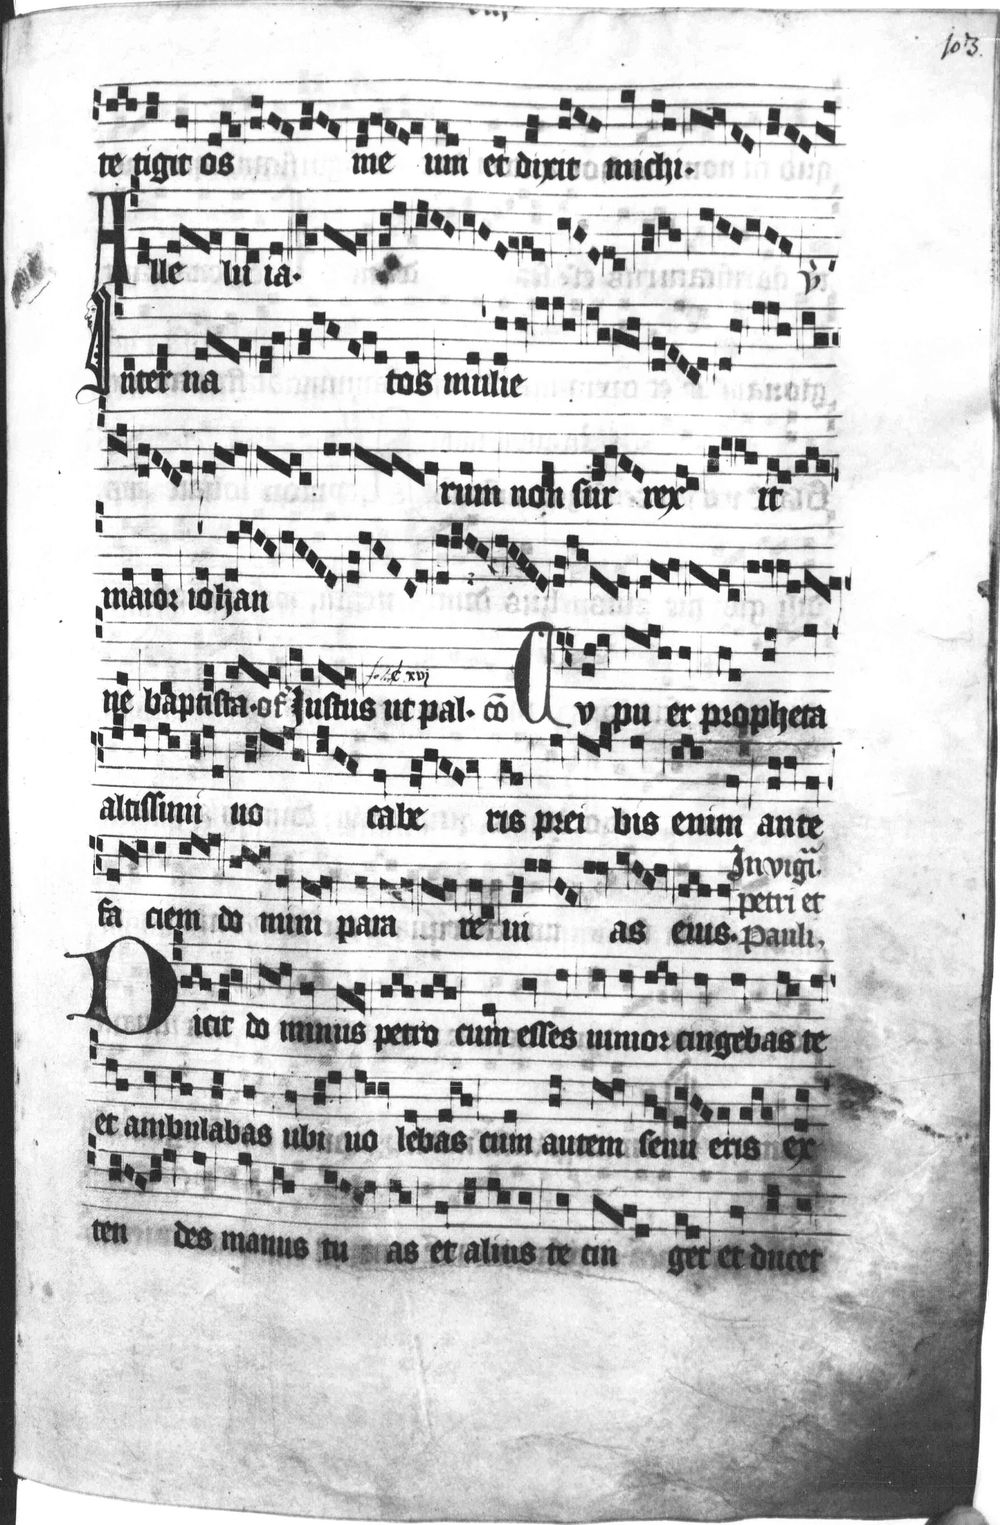 103.
te tigit os me um et dixit michi.
Alle lu ia. V
Inter na tos mulie
rum non sur rex it
maior iohan
ne baptista. of Justus ut pal. cō Tv pu er propheta
altissimi uo cabe ris prei bis enim ante
fa ciem do mini para re ui as eius.
In vigi.
petri et
Pauli.
Dicit do minus petro cum esses iunior cingebas te
et ambulabas ubi uo lebas cum autem senu eris ex
ten des manus tu as et alius te cin get et ducet